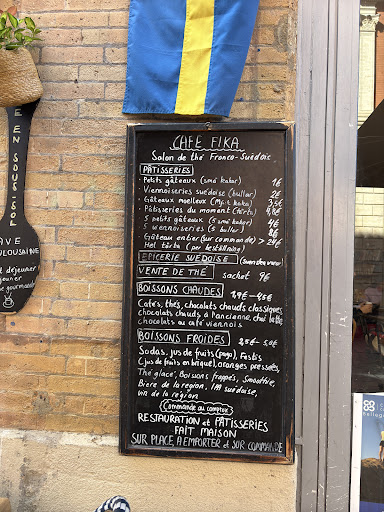 CAFÉ FIKA
Salon de thé Franco-Suédois
PÂTISSERIES
Petits gâteaux (små kakor) 1€
Viennoiseries suédoise (bullar) 2€
Gâteaux moelleux (Mjuk kaka) 3,5€
Pâtisseries du moment (tårta)
5 petits gâteaux (5 små kakor) 4€
5 viennoiseries (5 bullar) 8€
Gâteau entier (sur commande) > 24€
Hel tårta (per beställning)
EPICERIE SUEDOISE
VENTE DE THÉ sachet 9€
BOISSONS CHAUDES
Cafés, thés, chocolats chauds classiques,
chocolats chauds à l'ancienne, chai latte
chocolats au café viennois
BOISSONS FROIDES
Sodas, jus de fruits (pago), Festis
(jus de fruits en brique), oranges pressées,
Thé glacé, Boissons frappés, Smoothie,
Biere de la region, suédoise,
vin de la région
Commande au comptoir
RESTAURATION et PÂTISSERIES
FAIT MAISON
SUR PLACE, A EMPORTER et SUR COMMANDE
EN SOUS-SOL
AVE
OULOUSAINE
t déjeuner
jeuner
se gourmande